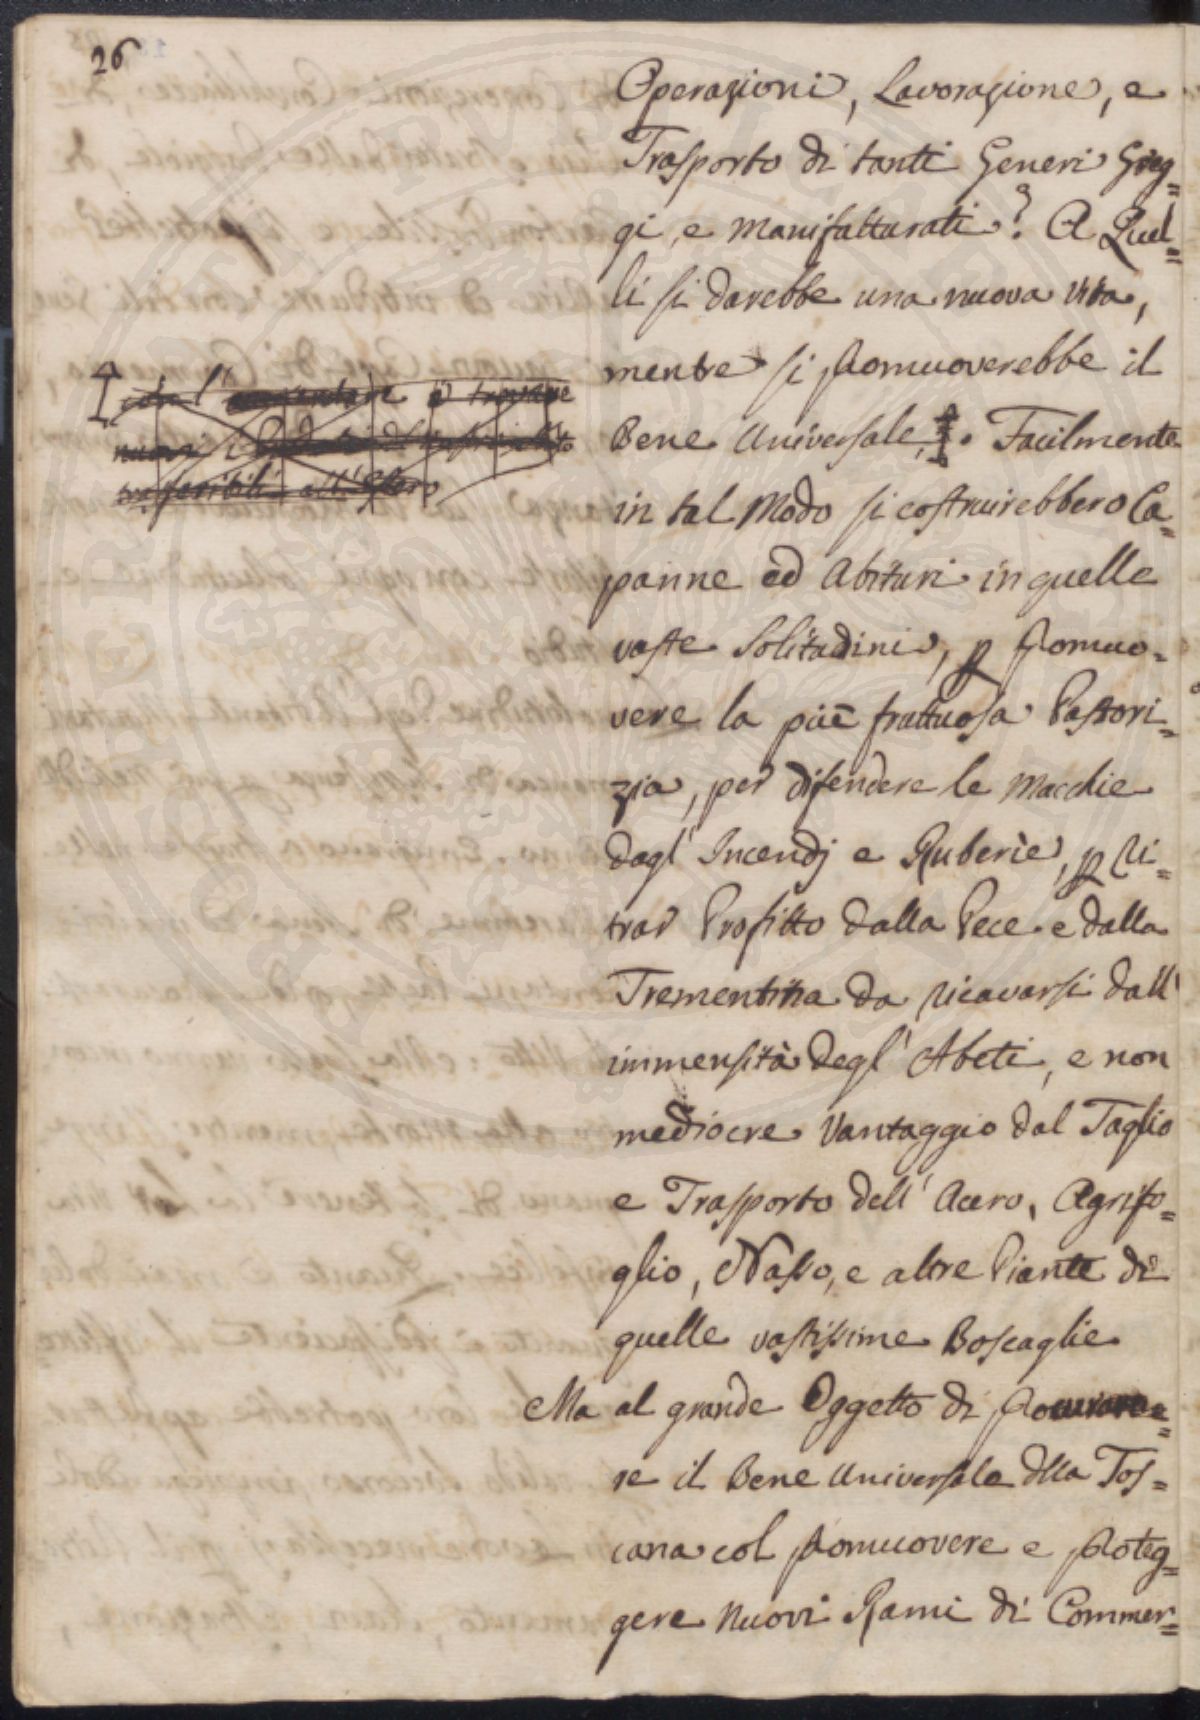 26
Operazioni, Lavorazione, e
Trasporto di tanti Generi Greg=
gi, e Manifatturati? A Quel=
li si darebbe una nuova vita,
mentre si promuoverebbe il
Bene Universale. Facilmente
in tal Modo si costruirebbero Ca=
panne ed Abituri in quelle
vaste Solitudini, p promuo=
vere la più fruttuosa Pastori=
zia, per difendere le Macchie
dagl' Incendj e Ruberie, p ri=
trar Profitto dalla Pece e dalla
Trementina da ricavarsi dall'
immensità degl' Abeti, e non
mediocre Vantaggio dal Taglio
e Trasporto dell' Acero, Agrifo=
glio, Nasso, e altre Piante di
quelle vastissime Boscaglie
Ma al grande Oggetto di
re il Bene Universale dlla Tos=
cana col promuovere e proteg=
gere nuovi Rami di Commer=
l' trovare
nuovi
all' Estero